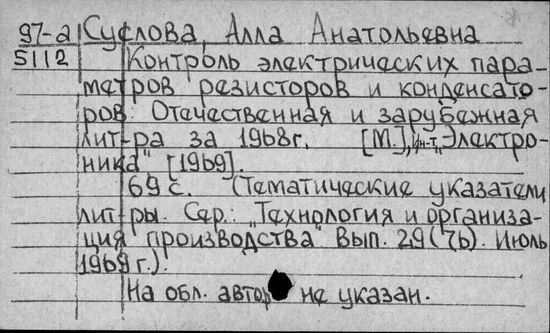 97-а Суслова, Алла Анатольевна
5112 Контроль электрических пара-
метров резисторов и конденсато-
ров. Отечественная и зарубежная
лит-ра за 1968г. [М.], Ин-т „Электро-
ника", [1969].
69 с. (Тематические указатели
лит-ры. Сер.: „Технология и организа-
ция производства" Вып. 29(76). Июль
1969 г.).
На обл. автор не указан.